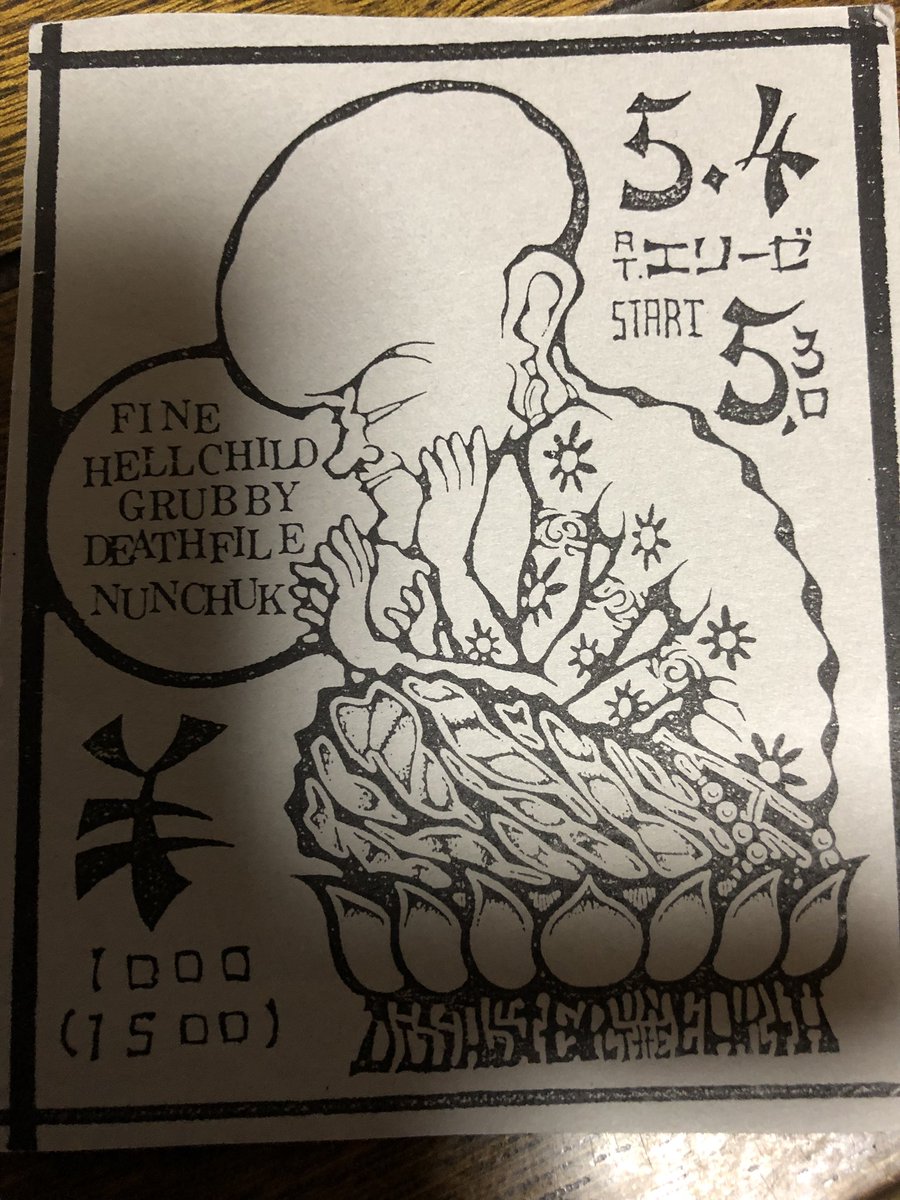 5.4
AT. エリーゼ
START 5.30
FINE
HELLCHILD
GRUBBY
DEATHFILE
NUNCHUK
¥
1000
(1500)